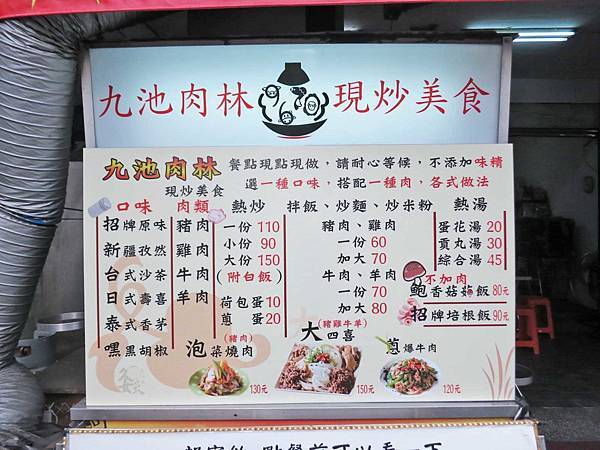 九池肉林 現炒美食
九池肉林 現炒美食
餐點現點現做,請耐心等候,不添加味精
選一種口味,搭配一種肉,各式做法
口味 肉類 熱炒 拌飯、炒麵、炒米粉 熱湯
招牌原味
新疆孜然
台式沙茶
日式壽喜
泰式香茅
嘿黑胡椒
豬肉
雞肉
牛肉
羊肉
一份 110
小份 90
大份 150
(附白飯)
荷包蛋10
蔥 蛋20
豬肉、雞肉
一份 60
加大 70
牛肉、羊肉
一份 70
加大 80
蛋花湯 20
貢丸湯 30
綜合湯 45
不加肉
鮑香菇菇飯80元
招牌培根飯90元
(豬肉)
泡菜燒肉
130元
(豬雞牛羊)
大四喜
150元
蔥爆牛肉
120元